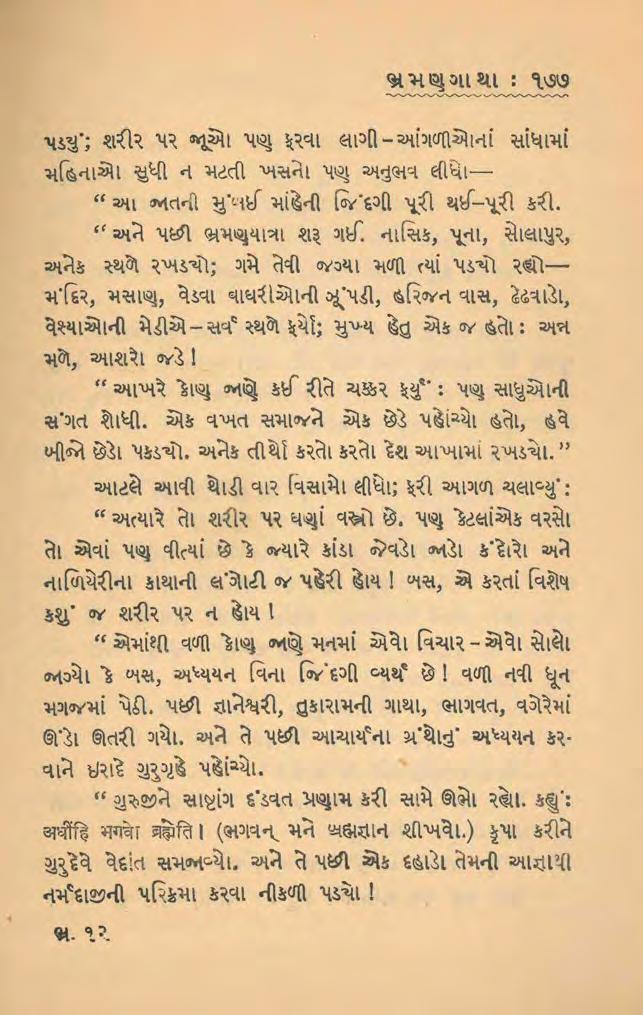 ભ્રમણગાથા : ૧૭૭
પડયું; શરીર પર જૂઓ પણ ફરવા લાગી-આંગળીઓનાં સાંધામાં
મહિનાઓ સુધી ન મટતી ખસનો પણ અનુભવ લીધો—
“ આ જાતની મુંબઈ માંહેની જિંદગી પૂરી થઈ-પૂરી કરી.
“ અને પછી ભ્રમણયાત્રા શરૂ ગઈ. નાસિક, પૂના, સોલાપુર,
અનેક સ્થળે રખડ્યો; ગમે તેવી જગ્યા મળી ત્યાં પડ્યો રહ્યો—
મંદિર, મસાણ, વેડવા વાઘરીઓની ઝૂંપડી, હરિજન વાસ, ઢેઢવાડો,
વેશ્યાઓની મેડીએ – સર્વ સ્થળે ફર્યો; મુખ્ય હેતુ એક જ હતો : અન્ન
મળે, આશરો જડે !
“ આખરે કોણ જાણે કઈ રીતે ચક્કર ફર્યું : પણ સાધુઓની
સંગત શોધી. એક વખત સમાજને એક છેડે પહોંચ્યો હતો, હવે
બીજો છેડો પકડ્યો. અનેક તીર્થો કરતો કરતો દેશ આખામાં રખડ્યો. ”
આટલે આવી થોડી વાર વિસામો લીધો; ફરી આગળ ચલાવ્યું :
“ અત્યારે તો શરીર પર ઘણાં વસ્ત્રો છે. પણ કેટલાંએક વરસો
તો એવાં પણ વીત્યાં છે કે જ્યારે કાંડા જેવડો જાડો કંદોરો અને
નાળિયેરીના કાથાની લંગોટી જ પહેરી હોય ! બસ, એ કરતાં વિશેષ
કશું જ શરીર પર ન હોય !
“ એમાંથી વળી કોણ જાણે મનમાં એવો વિચાર – એવો સોલો
જાગ્યો કે બસ, અધ્યયન વિના જિંદગી વ્યર્થ છે ! વળી નવી ધૂન
મગજમાં પેઠી. પછી જ્ઞાનેશ્વરી, તુકારામની ગાથા, ભાગવત, વગેરેમાં
ઊંડો ઊતરી ગયો. અને તે પછી આચાર્યના ગ્રંથોનું અધ્યયન કર-
વાને ઇરાદે ગુરુગૃહે પહોંચ્યો.
“ ગુરુજીને સાષ્ટાંગ દંડવત પ્રણામ કરી સામે ઊભો રહ્યો. કહ્યું :
अधीहि भगवो ब्रह्मेति । (ભગવન્ મને બ્રહ્મજ્ઞાન શીખવો.) કૃપા કરીને
ગુરુદેવે વેદાંત સમજાવ્યો. અને તે પછી એક દહાડો તેમની આજ્ઞાથી
નર્મદાજીની પરિક્રમા કરવા નીકળી પડ્યો !
ભ્ર. ૧૨